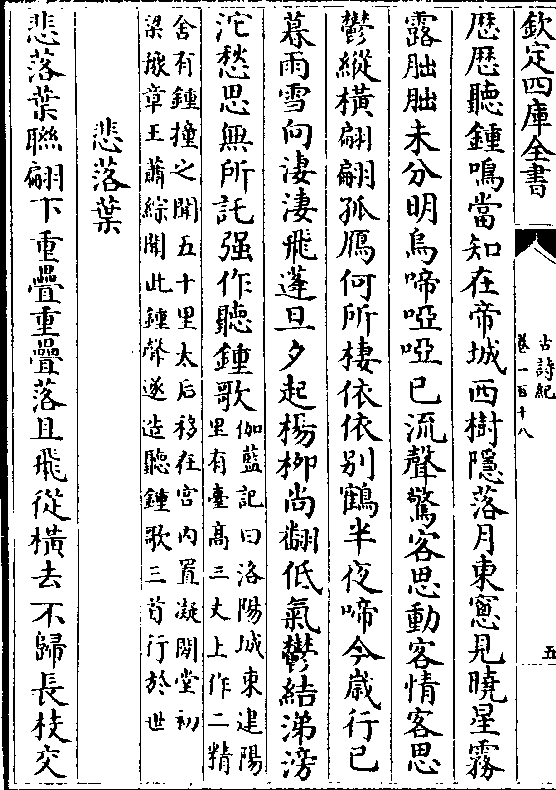 欽定四庫全書
古詩紀
卷一百十八
五
歴歴聽鍾鳴當知在帝城西樹隱落月東窻見曉星霧
露朏朏未分明烏啼啞啞已流聲驚客思動客情客思
鬱縱横翩翩孤鴈何所棲依依别鶴半夜啼今歳行已
暮雨雪向淒淒飛蓬旦夕起楊柳尚翻低氣鬱結涕滂
沱愁思無所託强作聽鍾歌
伽藍記曰洛陽城東建陽
里有臺髙三丈上作二精
舍有鍾撞之聞五十里太后移在宫内置凝閒堂初
梁豫章王蕭綜聞此鍾聲遂造聽鍾歌三首行於世
悲落葉
悲落葉聯翩下重疊重疊落且飛從横去不歸長枝交